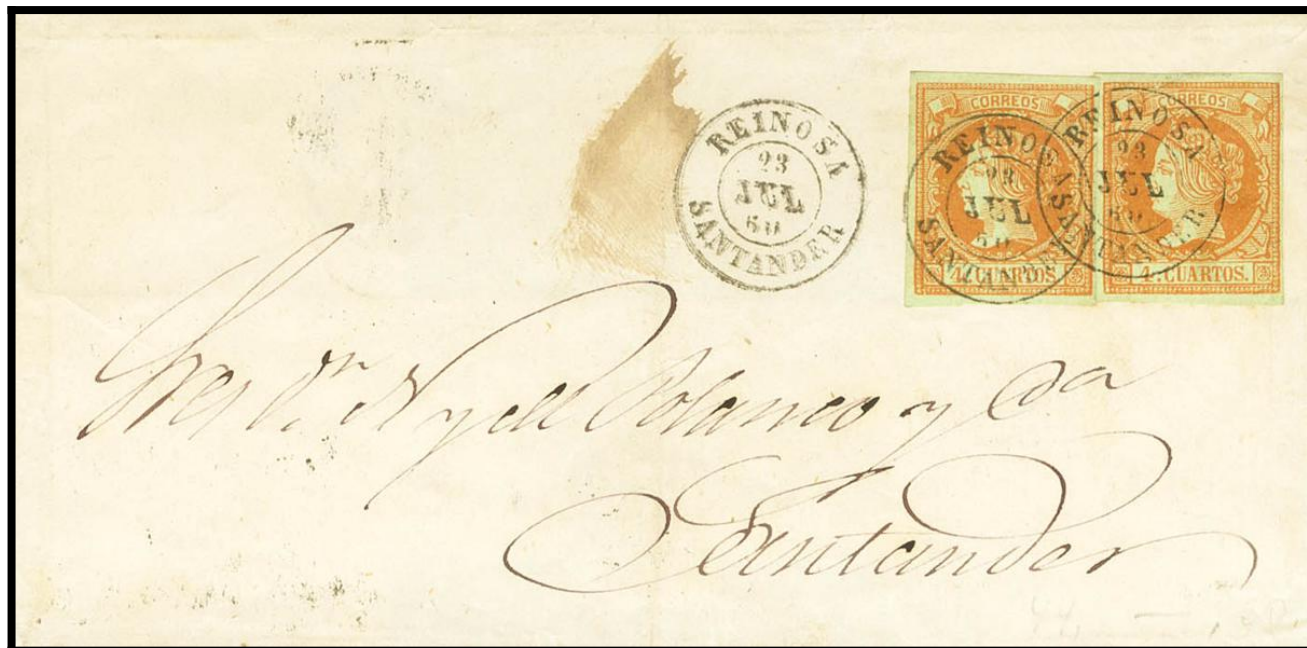 REINOSA
23
JUL
60
SANTANDER
CORREOS
REINOSA
23
JUL
60
SANTANDER
4 CUARTOS.
CORREOS
REINOSA
23
JUL
60
SANTANDER
4 CUARTOS.
Sres Dn N y de Polanco y Ca
Santander